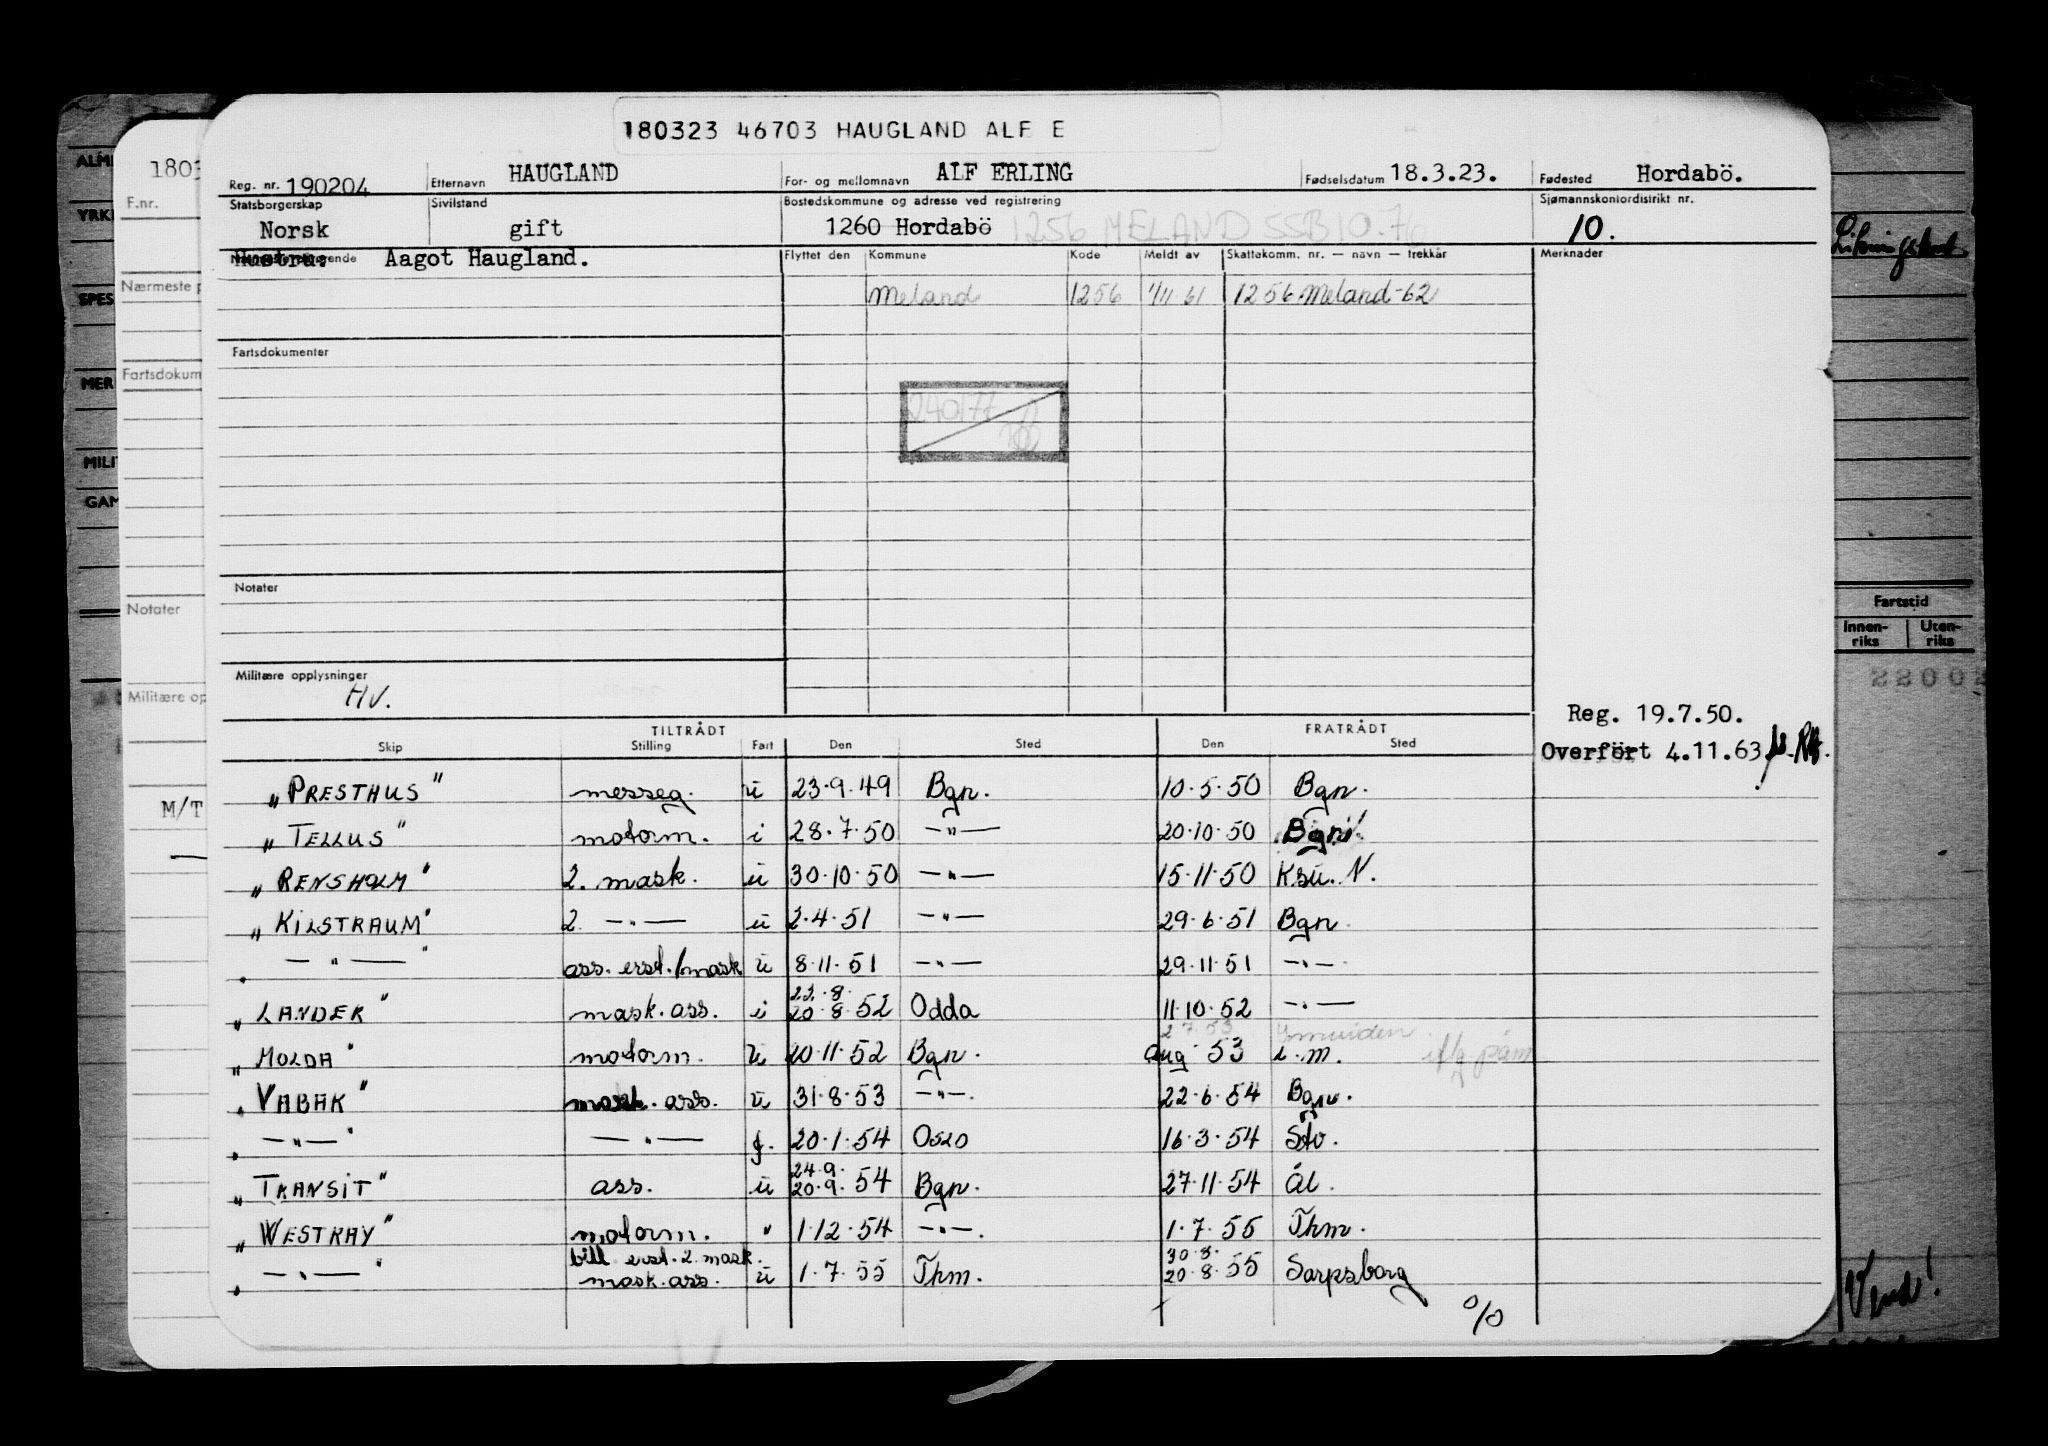 180323 46703 HAUGLAND ALF E
Reg. nr. 190204 Etternavn HAUGLAND For- og mellomnavn ALF ERLING Fødselsdatum 18.3.23. Fødested Hordabö.
Statsborgerskap Sivilstand Bostedskommune og adresse ved registrering Sjømannskontordistrikt nr.
Norsk gift 1260 Hordabö 1256 MELAND SSB 10.76 10.
Hustru: Aagot Haugland. Flyttet den Kommune Kode Meldt av Skattekomm. nr. — navn — trekkår Merknader
Meland 1256 1/11 61 1256 Meland-62
Fartsdokumenter
240177
Notater
Militære opplysninger
HV.
Reg. 19.7.50.
Overført 4.11.63
TILTRÅDT FRATRÅDT
Skip Stilling Fart Den Sted Den Sted
"PRESTHUS" messeg. u 23.9.49 Bgn. 10.5.50 Bgn.
"TELLUS" motorm. i 28.7.50 —"— 20.10.50 Bgn.
"RENSHOLM" 2. mask. u 30.10.50 —"— 15.11.50 Ksu. N.
"KILSTRAUM" 2. —"— u 2.4.51 —"— 29.6.51 Bgn.
—"—" ass. erst./mask u 8.11.51 —"— 29.11.51 —"—
22.8.
"LANDEK" mask. ass. i 20.8.52 Odda 11.10.52 —"—
2 7.53 Ymuiden
"MOLDA" motorm. u 20.11.52 Bgn. aug 53 i.m.
"VABAK" mask. ass. u 31.8.53 —"—. 22.6.54 Bgn.
—"—" —"— f. 20.1.54 Oslo 16.3.54 Stv.
24.9.
"TRANSIT" ass. u 20.9.54 Bgn. 27.11.54 Ål.
"WESTRAY" motorm. " 1.12.54 —"—. 1.7.55 Thm.
till. erst. 2. mask. 30.8.
—"—" mask. ass. u 1.7.55 Thm. 20.8.55 Sarpsborg
o/o
180
F.nr.
Nærmeste p
Fartsdokum
Notater
Militære op
M/T
ALM
YRK
SPES
MER
MILI
GAM
Fartstid
Innen-
riks
Uten-
riks
22002
Vend!